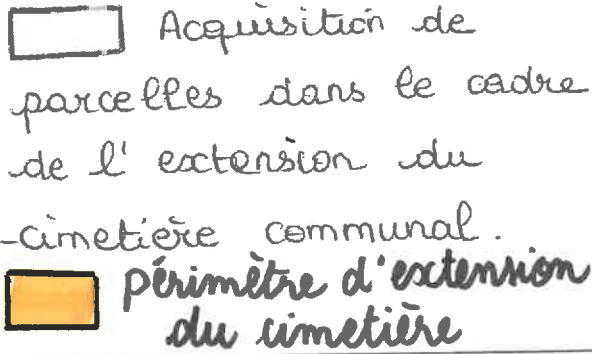 Acquisition de
parcelles dans le cadre
de l'extension du
cimetière communal.
périmètre d'extension
du cimetière